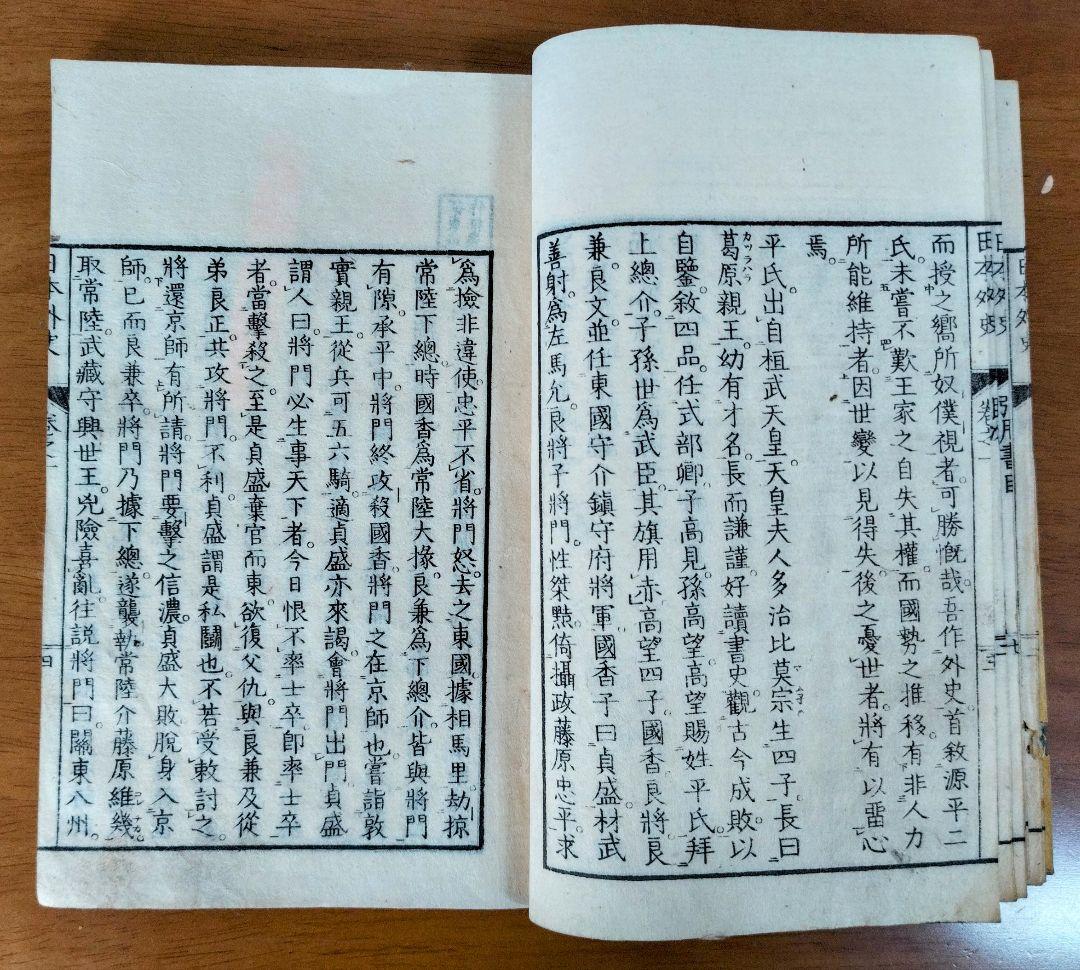 而授之嚮所奴僕視者可勝慨哉吾作外史首敘源平二
氏未嘗不歎王家之自失其權而國勢之推移有非人力
所能維持者因世變以見得失後之憂世者將有以畱心
焉
平氏出自桓武天皇天皇夫人多治比莫宗生四子長曰
葛原親王幼有才名長而謙謹好讀書史觀古今成敗以
カツラハラ
自鑒敘四品任式部卿子高見孫高望高望賜姓平氏拜
上總介子孫世爲武臣其旗用赤高望四子國香良將良
兼良文並任東國守介鎭守府將軍國香子曰貞盛材武
善射爲左馬允良將子將門性桀黠倚攝政藤原忠平求
爲撿非違使忠平不省將門怒去之東國據相馬里劫掠
常陸下總時國香爲常陸大掾良兼爲下總介皆與將門
有隙承平中將門終攻殺國香將門之在京師也嘗詣敦
實親王從兵可五六騎適貞盛亦來謁會將門出門貞盛
謂人曰將門必生事天下者今日恨不率士卒卽率士卒
者當擊殺之至是貞盛棄官而東欲復父仇與良兼及從
弟良正共攻將門不利貞盛謂是私鬪也不若受敕討之
將還京師有所請將門要擊之信濃貞盛大敗脫身入京
師已而良兼卒將門乃據下總遂襲執常陸介藤原維幾
取常陸武藏守興世王兇險喜亂往説將門曰關東八州
日本外史
卷之一
四